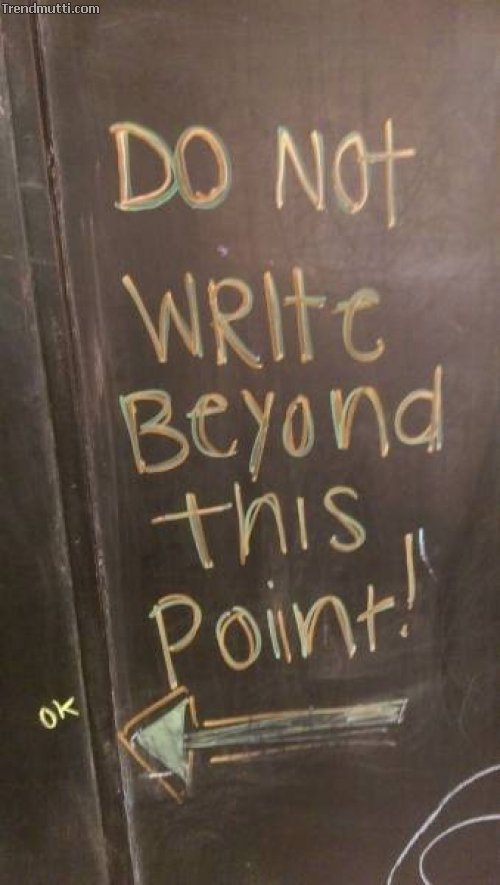 Trendmutti.com
DO NOt
WRIte
Beyond
this
Point!
OK